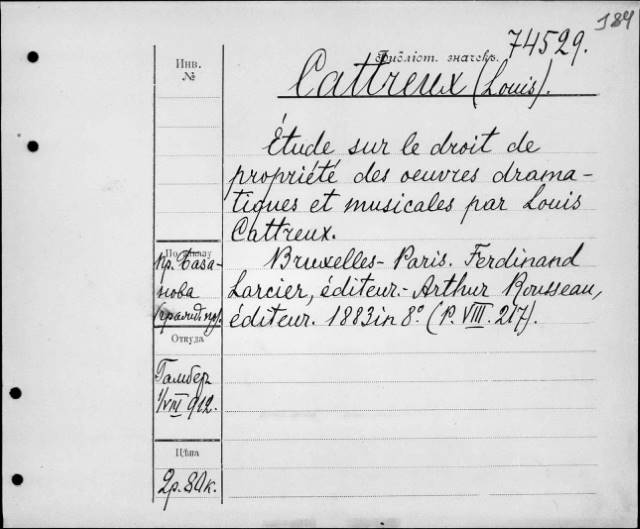 184
74529.
Инв.
№
Библіот. значекъ.
Cattreux (Louis).
Étude sur le droit de
propriété des oeuvres drama-
tiques et musicales par Louis
Cattreux.
Bruxelles-Paris. Ferdinand
Larcier, éditeur.- Arthur Rousseau,
éditeur. 1883 in 8° (P. VIII. 217).
Пр. База-
нова
Откуда
Гамбер
1/VIII 912.
Цѣна
2р. 80к.